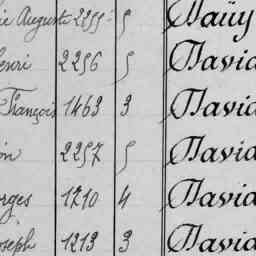 ie Auguste 2255 5 Dauy
enri 2256 5 David
François 1463 3 David
on 2257 5 David
rges 1210 4 David
oseph 1213 3 David